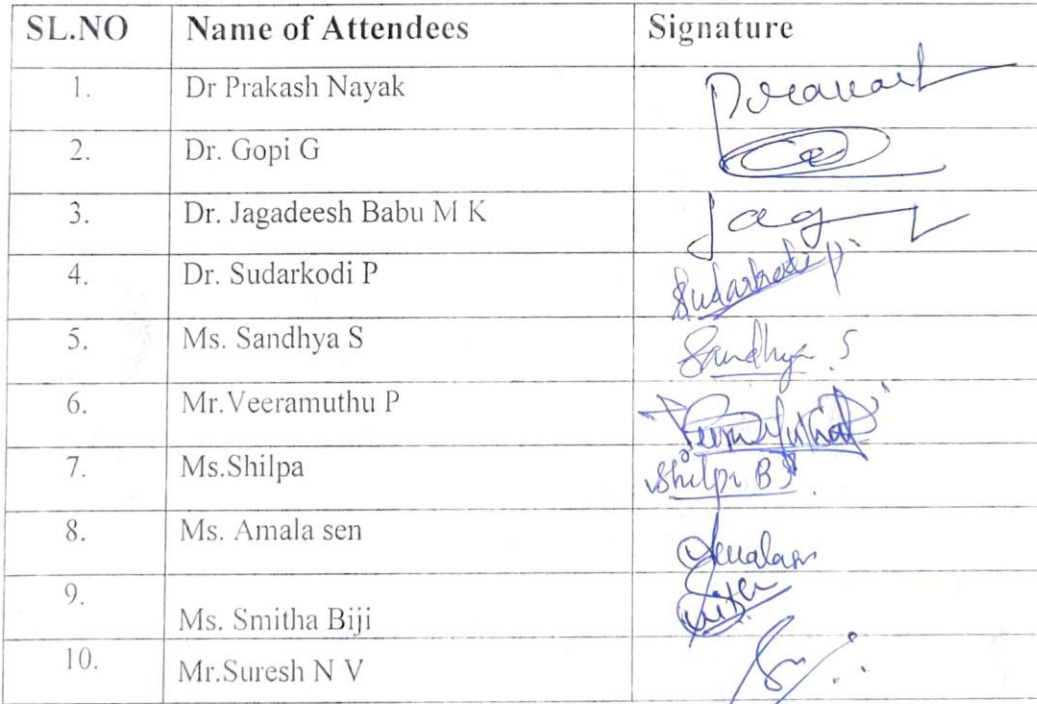 SL.NO Name of Attendees Signature
1. Dr Prakash Nayak
2. Dr. Gopi G
3. Dr. Jagadeesh Babu M K Jag
4. Dr. Sudarkodi P Sudarkodi P
5. Ms. Sandhya S Sandhya S
6. Mr.Veeramuthu P
7. Ms.Shilpa Shilpa B S
8. Ms. Amala sen
9. Ms. Smitha Biji
10. Mr.Suresh N V